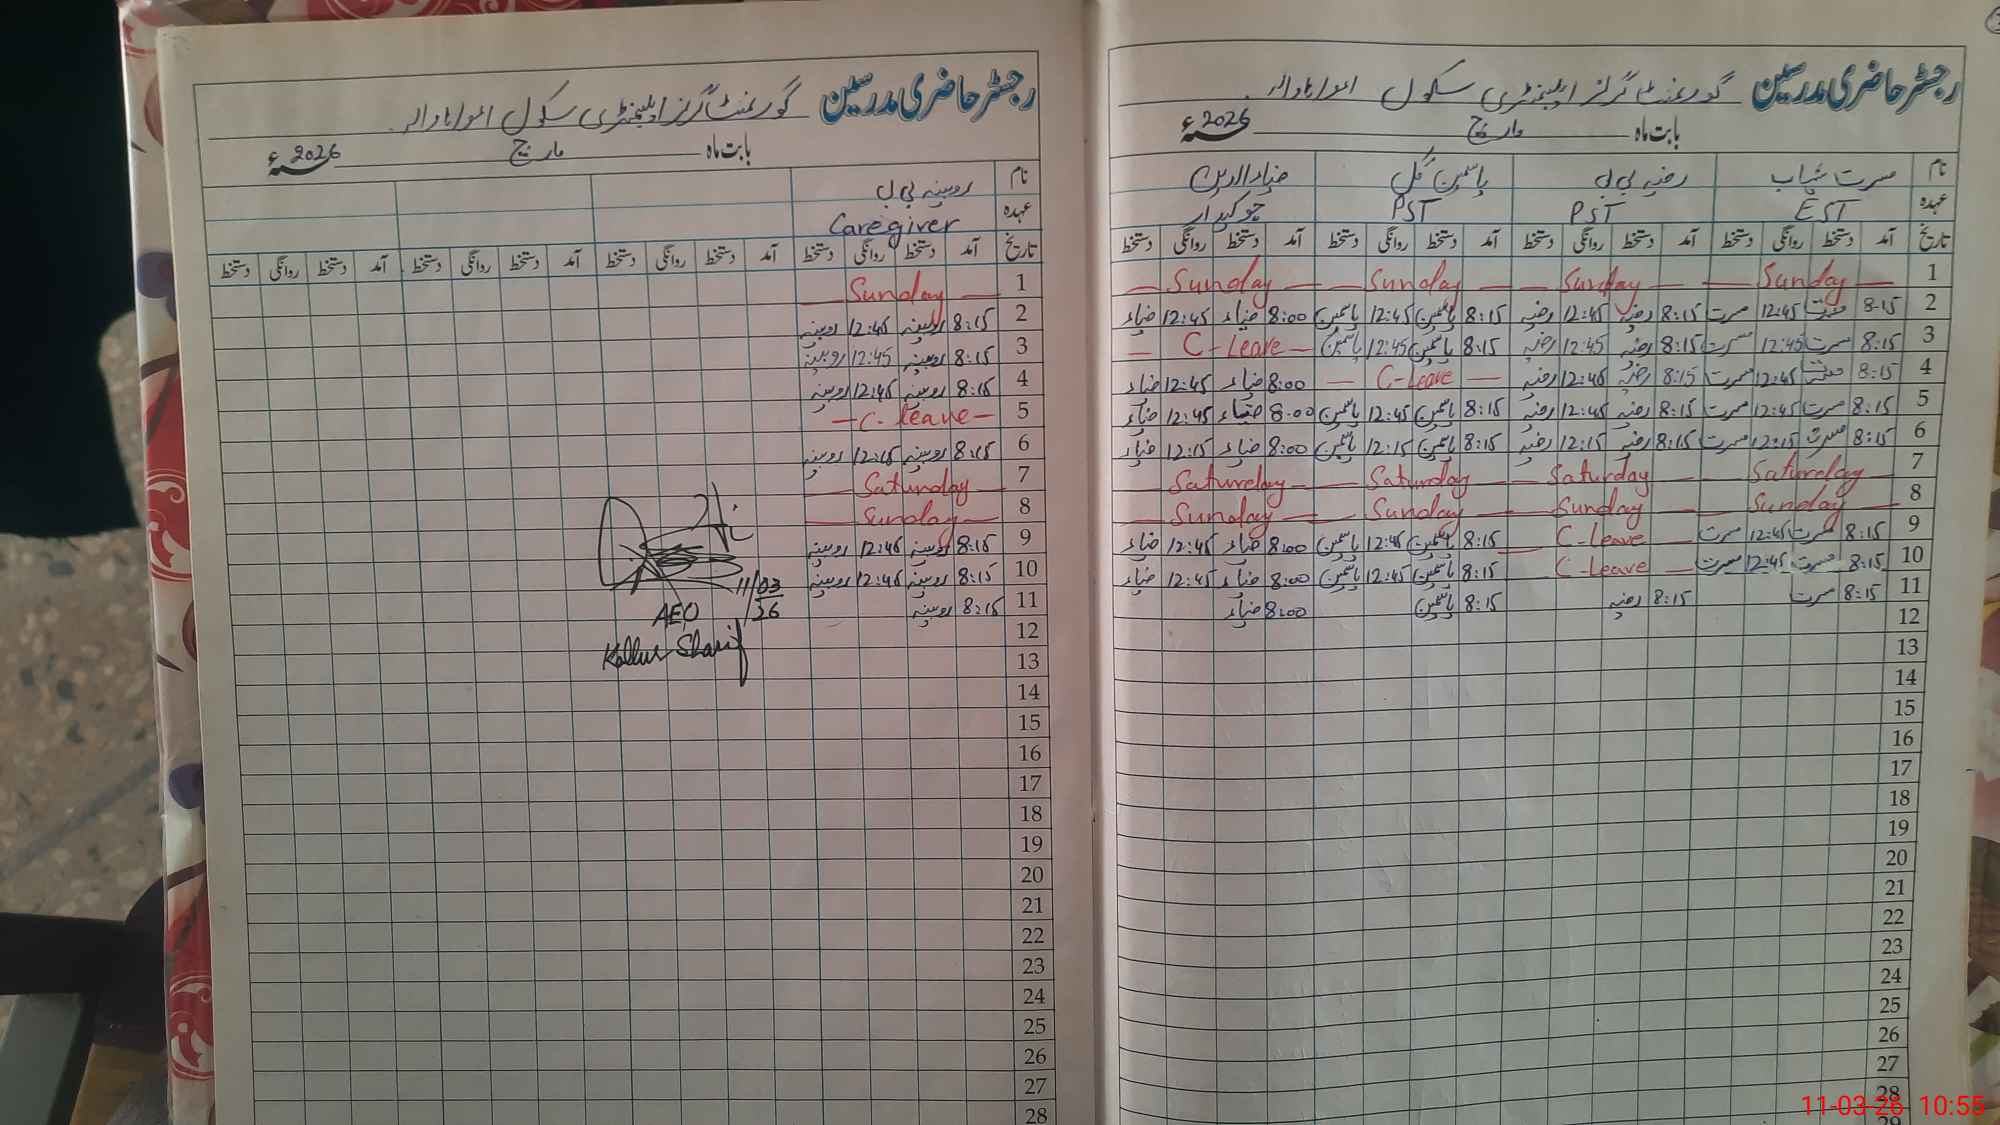 رجسٹر حاضری مدرسین گورنمنٹ گرلز ایلیمنٹری سکول
بابت ماہ مارچ 2026ء
نام مسرت شہاب رضیہ بی بی یاسمین گل ضیاء الدین
عہدہ EST PST PST چوکیدار
تاریخ آمد دستخط روانگی دستخط آمد دستخط روانگی دستخط آمد دستخط روانگی دستخط آمد دستخط روانگی دستخط
1 Sunday Sunday Sunday Sunday
2 8:15 مسرت 12:45 مسرت 8:15 رضیہ 12:45 رضیہ 8:15 یاسمین 12:45 یاسمین 8:00 ضیاء 12:45 ضیاء
3 8:15 مسرت 12:45 مسرت 8:15 رضیہ 12:45 رضیہ 8:15 یاسمین 12:45 یاسمین C-Leave
4 8:15 مسرت 12:45 مسرت 8:15 رضیہ 12:45 رضیہ C-Leave 8:00 ضیاء 12:45 ضیاء
5 8:15 مسرت 12:45 مسرت 8:15 رضیہ 12:45 رضیہ 8:15 یاسمین 12:45 یاسمین 8:00 ضیاء 12:45 ضیاء
6 8:15 مسرت 12:15 مسرت 8:15 رضیہ 12:15 رضیہ 8:15 یاسمین 12:15 یاسمین 8:00 ضیاء 12:15 ضیاء
7 Saturday Saturday Saturday Saturday
8 Sunday Sunday Sunday Sunday
9 8:15 مسرت 12:45 مسرت C-Leave 8:15 یاسمین 12:45 یاسمین 8:00 ضیاء 12:45 ضیاء
10 8:15 مسرت 12:45 مسرت C-Leave 8:15 یاسمین 12:45 یاسمین 8:00 ضیاء 12:45 ضیاء
11 8:15 مسرت 8:15 رضیہ 8:15 یاسمین 8:00 ضیاء
12
13
14
15
16
17
18
19
20
21
22
23
24
25
26
27
28
29
رجسٹر حاضری مدرسین گورنمنٹ گرلز ایلیمنٹری سکول
بابت ماہ مارچ 2026ء
نام روبینہ بی بی
عہدہ Caregiver
تاریخ آمد دستخط روانگی دستخط آمد دستخط روانگی دستخط آمد دستخط روانگی دستخط آمد دستخط روانگی دستخط
1 Sunday
2 8:15 روبینہ 12:45 روبینہ
3 8:15 روبینہ 12:45 روبینہ
4 8:15 روبینہ 12:45 روبینہ
5 C-leave
6 8:15 روبینہ 12:15 روبینہ
7 Saturday
8 Sunday
9 8:15 روبینہ 12:45 روبینہ
10 8:15 روبینہ 12:45 روبینہ
11 8:15 روبینہ
12
13
14
15
16
17
18
19
20
21
22
23
24
25
26
27
28
11/03/26
AEO
Kallur Sharif
11-03-26 10:55